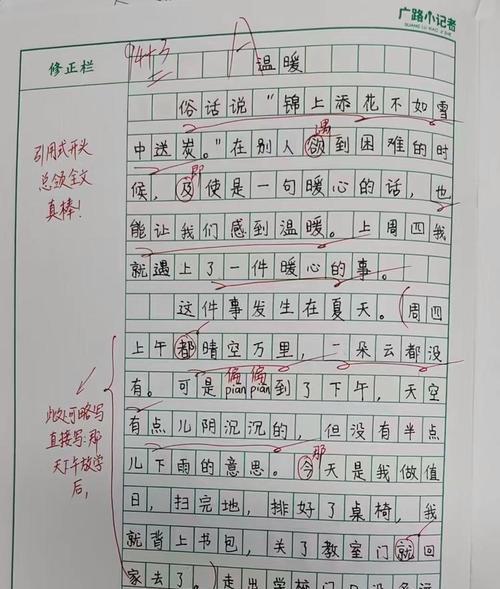 广路小记者
GUANG LU XIAO JI ZHE
修正栏
94+3
A
温暖
俗话说"锦上添花不如雪
中送炭。"在别人欲到困难的时
遇
候，及使是一句暖心的话，也
即
能让我们感到温暖。上周四我
就遇上了一件暖心的事。
这件事发生在夏天。周四
上午都晴空万里，一朵云都没
有。可是piān piān到了下午，天空
偏偏
有点儿阴沉沉的，但没有半点
儿下雨的意思。今天是我做值
那
日，扫完地，排好了桌椅，我
就背上书包，关了教室门就回
家去了。走出学校门口没多远
引用式开头
总领全文
真棒！
此处可略写
直接写：那
天下午放学
后，